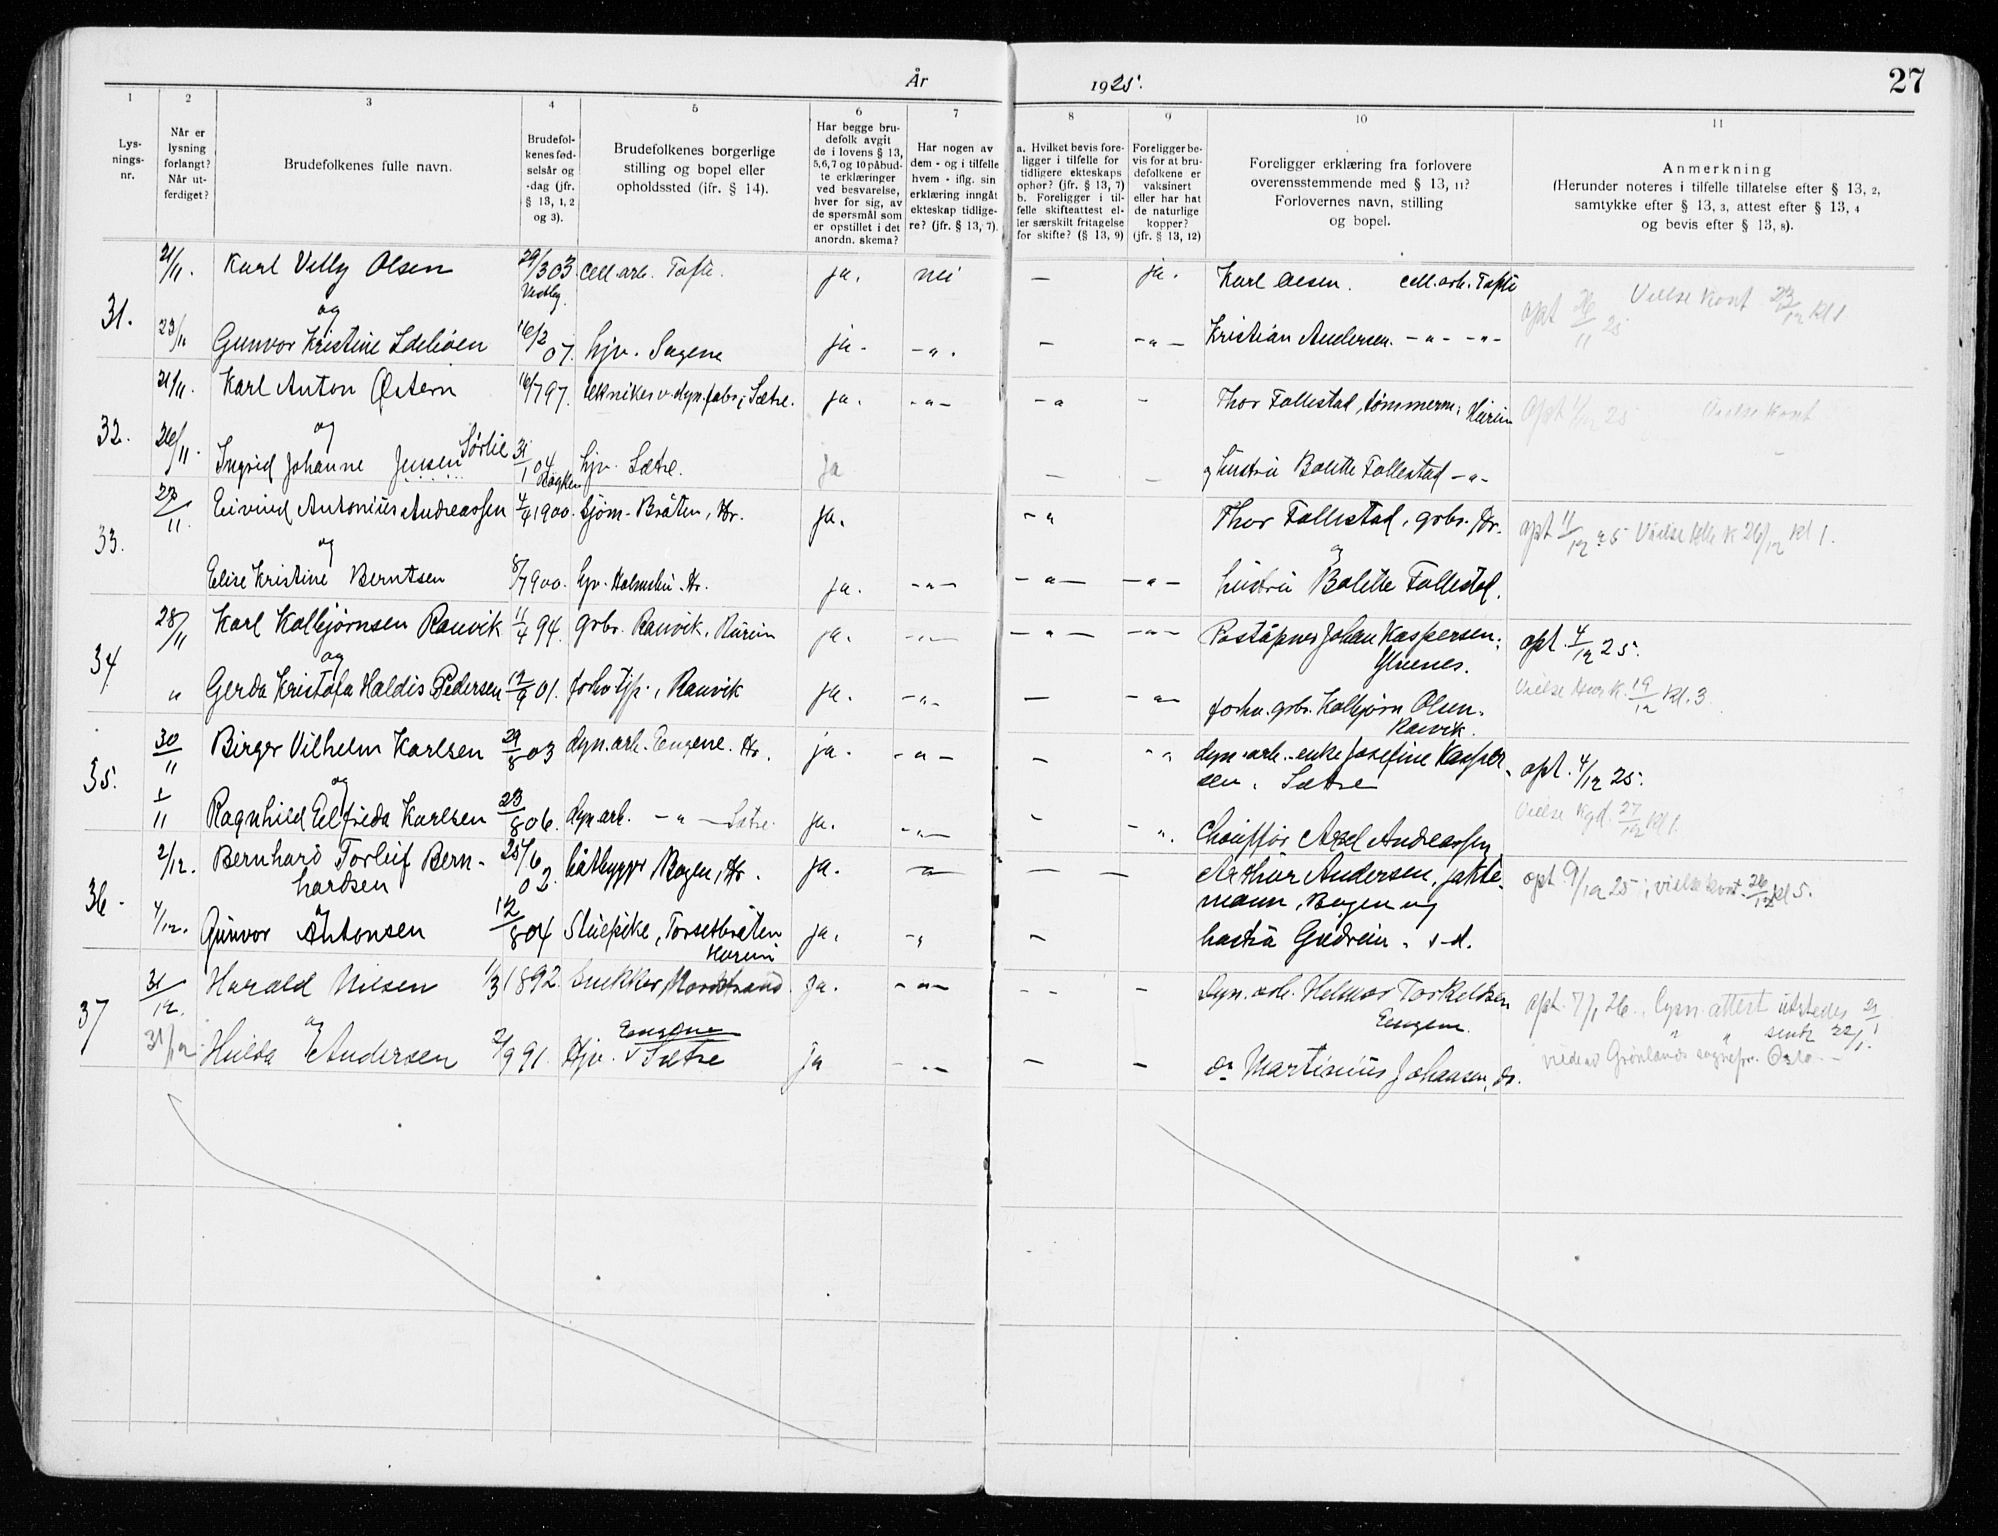 År 1925. 27
1 2 3 4 5 6 7 8 9 10 11
Lysningsnr.
Når er lysning forlangt? Når utferdiget?
Brudefolkenes fulle navn.
Brudefolkenes fødselsår og -dag (jfr. § 13, 1, 2 og 3).
Brudefolkenes borgerlige stilling og bopel eller opholdssted (jfr. § 14).
Har begge brudefolk avgit de i lovens § 13, 5,6,7 og 10 påbudte erklæringer ved besvarelse, hver for sig, av de spørsmål som er opstillet i det anordn. skema?
Har nogen av dem - og i tilfelle hvem - iflg. sin erklæring inngåt ekteskap tidligere? (jfr. § 13, 7).
a. Hvilket bevis foreligger i tilfelle for tidligere ekteskaps ophør? (jfr. § 13, 7) b. Foreligger i tilfelle skifteattest eller særskilt fritagelse for skifte? (§ 13, 9)
Foreligger bevis for at brudefolkene er vaksinert eller har hat de naturlige kopper? (jfr. § 13, 12)
Foreligger erklæring fra forlovere overensstemmende med § 13, 11? Forlovernes navn, stilling og bopel.
Anmerkning (Herunder noteres i tilfelle tillatelse efter § 13, 2, samtykke efter § 13, 3, attest efter § 13, 4 og bevis efter § 13, 8).
21/11. Karl Villy Olsen 29/3 03 Vestby. cell. arb. Tofte. ja. nei — ja. Karl Olsen. cell. arb. Tofte opt 26/11 25 Vielse kont 23/12 kl 1
31. og
23/11 Gunvor Kristine 16/2 07. hjv. Sagene ja. -"- — -"- Kristian Andersen. -"- -"-
21/11. Karl Anton Østern 16/7 97. tekniker v. dyn. fabr. Sætre. ja. -"- -"- - Thor Follestad, tømmerm. Hurum opt 1/12 25 Vielse kont
32. og
26/11. Ingrid Johanne Jensen Sørlie 31/1 04 Røyken hjv. Sætre. ja — — og hustru Bolette Follestad -"-
27/11. Eivind Antonius Andreassen 4/9 1900. sjøm. Bråten, Hr. ja. -"- Thor Follestad, grbr. Hr. opt 11/12 25 Vielse K 26/12 kl 1.
33. og og
Elise Kristine Berntsen 8/7 900. hjv. Holmsbu. Hr. ja. -"- -"- -"- hustru Bolette Follestad.
28/11 Karl Kolbjørnsen Ranvik 11/4 94. grbr. Ranvik, Hurum ja. -"- -"- -"- Poståpner Johan Kaspersen. opt. 4/12 25.
34 og
" Gerda Kristofa Haldis Pedersen 12/9 01. forhv. tjp., Ranvik ja. -"- — -"- forhv. grbr. Kolbjørn Olsen. Ranvik. Vielse Hur. K. 19/12 kl. 3
30/11 Birger Vilhelm Karlsen 29/8 03 dyn. arb. Engene. Hr. ja. -"- — -"- dyn. arb. enke Josefine Kaspersen. Sætre opt. 4/12 25.
35. og
1/11 Ragnhild Elfrida Karlsen 23/8 06. dyn. arb. -"- Sætre. ja. -"- - -"- Chauffør Axel Andreassen Vielse Kgd. 27/12 kl 1.
2/12. Bernhard Torleif Bernhardsen 25/6 02. båtbygger Bogen, Hr. ja. -"- — — Arthur Andersen, jaktemann, Bogen og opt 9/12 25; vielse kont. 26/12 kl 5.
36. og
4/12. Gunvor Antonsen 12/8 04 Stuepike, Torsetbråten Hurum ja. -"- — hustru Gudrun. s-d.
31/12. Harald Nilsen 1/3 1892. Snekker, Nordstrand. Ja. -"- -- - Dyn. arb. Helmer Torkelsen Engene. opt. 7/1 26. lysn. attest utstedes 21/1
37 og " " sendt 22/1.
31/12 Hulda Andersen 2/9 91. Hjv. Engene Sætre ja -"- — - Martinius Johansen, ds. viede av Grønlands sognepr. Oslo.